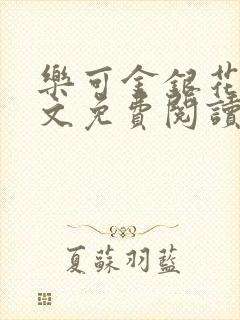 樂可金銀花
文免費閱讀
夏蘇羽藍